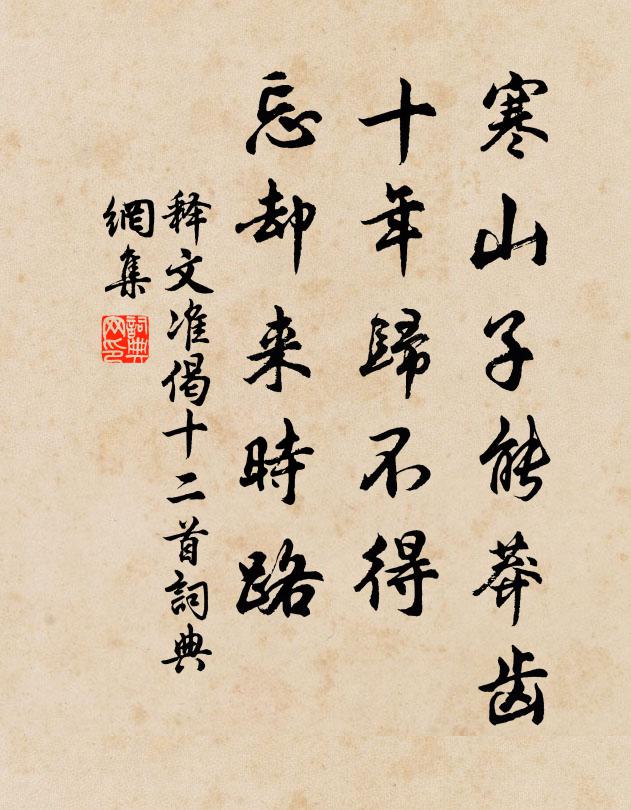 寒山子能莽齿
十年歸不得
忘却来時路
释文准偈十二首詞典
網集
詞典
网印